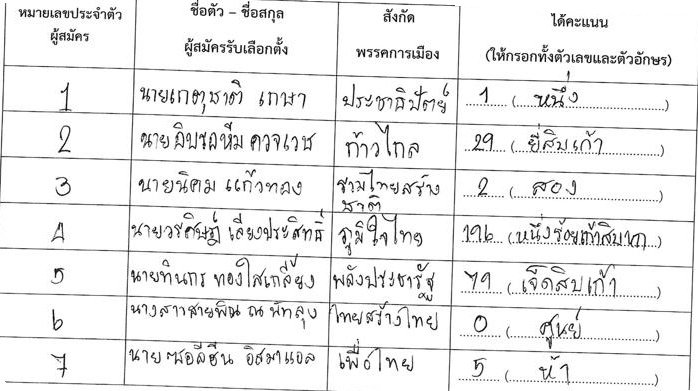 หมายเลขประจำตัว
ผู้สมัคร
ชื่อตัว – ชื่อสกุล
ผู้สมัครรับเลือกตั้ง
สังกัด
พรรคการเมือง
ได้คะแนน
(ให้กรอกทั้งตัวเลขและตัวอักษร)
1 นายเกตุชาติ เกษา ประชาธิปัตย์ 1 ( หนึ่ง )
2 นายอิบรอหีม ก้าวไกล 29 ( ยี่สิบเก้า )
3 นายนิคม แก้วทอง รวมไทยสร้าง 2 ( สอง )
ชาติ
4 นายวรศิษฎ์ เลียงประสิทธิ์ ภูมิใจไทย 196 ( หนึ่งร้อยเก้าสิบหก )
5 นายทินกร ทองใสเกลี้ยง พลังประชารัฐ 79 ( เจ็ดสิบเก้า )
6 นางสาวสายพิณ ณ พัทลุง ไทยสร้างไทย 0 ( ศูนย์ )
7 อิสมาแอล เพื่อไทย 5 ( ห้า )